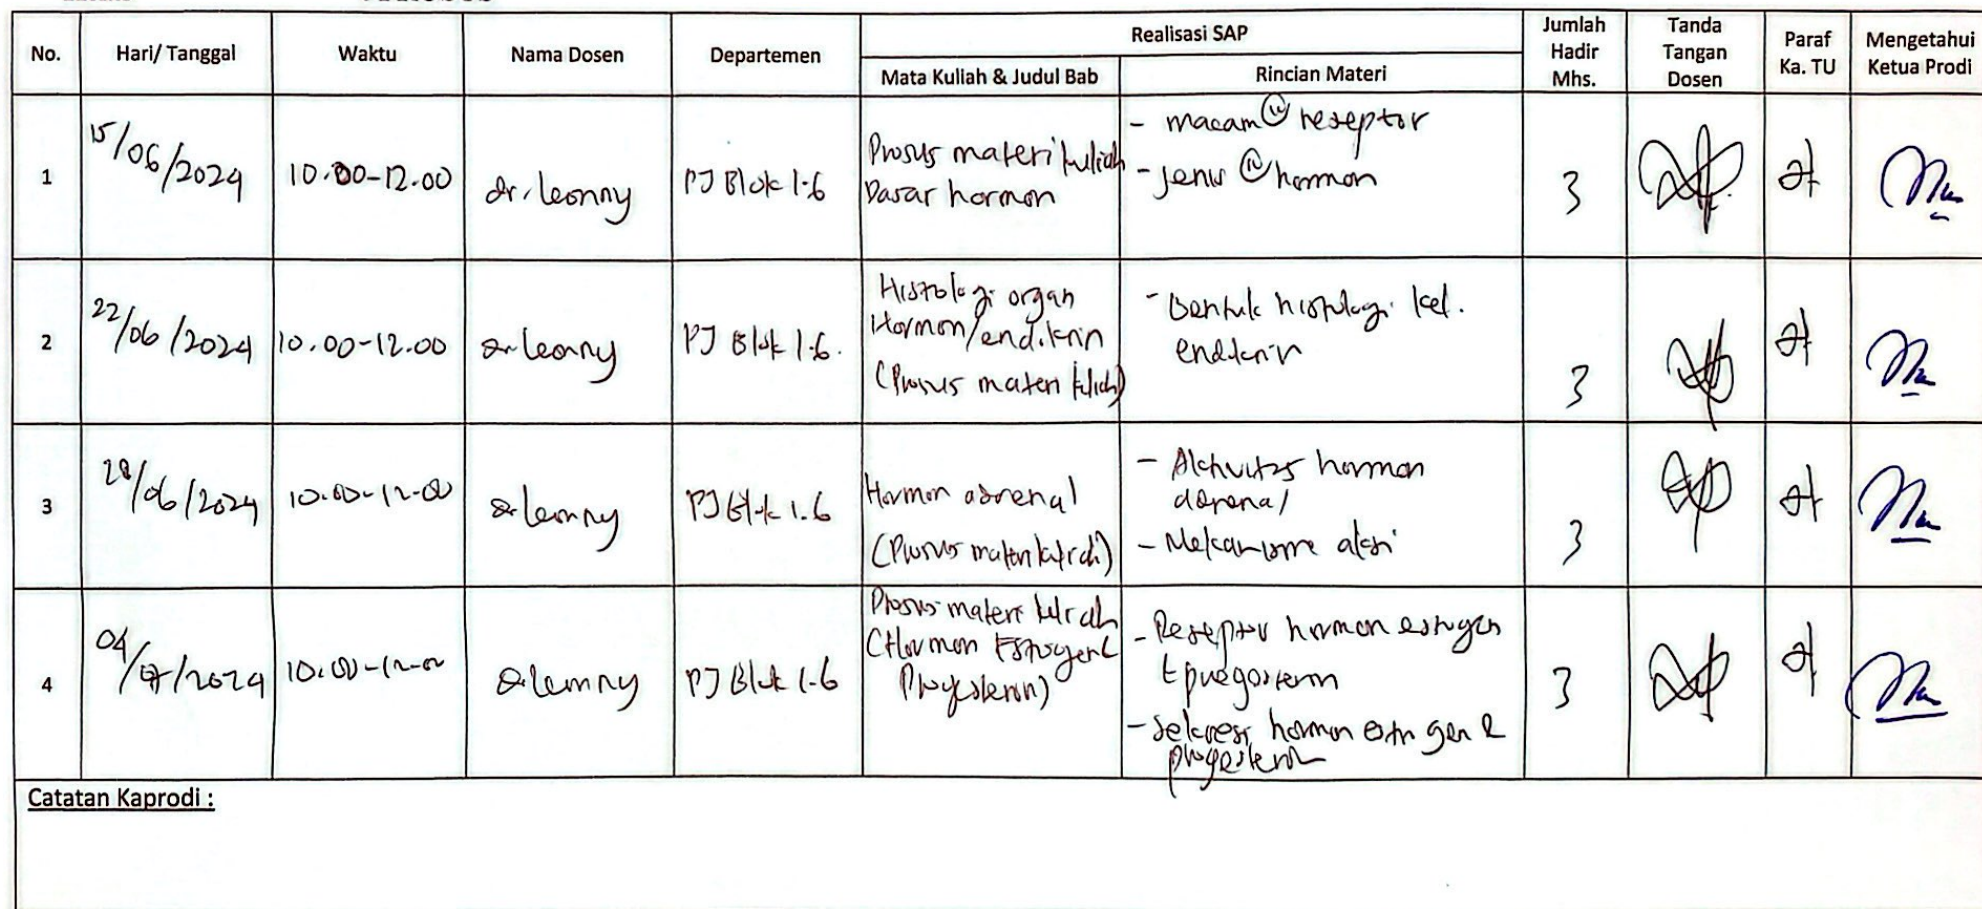 No. Hari/ Tanggal Waktu Nama Dosen Departemen Realisasi SAP Jumlah Hadir Mhs. Tanda Tangan Dosen Paraf Ka. TU Mengetahui Ketua Prodi
Mata Kuliah & Judul Bab Rincian Materi
1 15/06/2024 10.00-12.00 dr. leonny PJ Blok 1.6
Prosus materi kuliah
Dasar hormon
- macam② reseptor
- jenis ② hormon
3
2 22/06/2024 10.00-12.00 dr leonny PJ Blok 1.6.
Histologi organ
Hormon/endokrin
(Prosus materi kuliah)
- Bentuk histologi kel.
endokrin
3
3 28/06/2024 10.00-12-00 dr leonny PJ Blok 1.6
Hormon adrenal
(Prosus materi kuliah)
- Aktivitas hormon
- Mekanisme aksi
3
4 04/7/2024 10.00-12-00 dr leonny PJ Blok 1.6
Prosus materi kuliah
(Hormon Estrogen &
Progesteron)
- Reseptor hormon estrogen
- Sekresi hormon estrogen &
progesteron
3
Catatan Kaprodi :